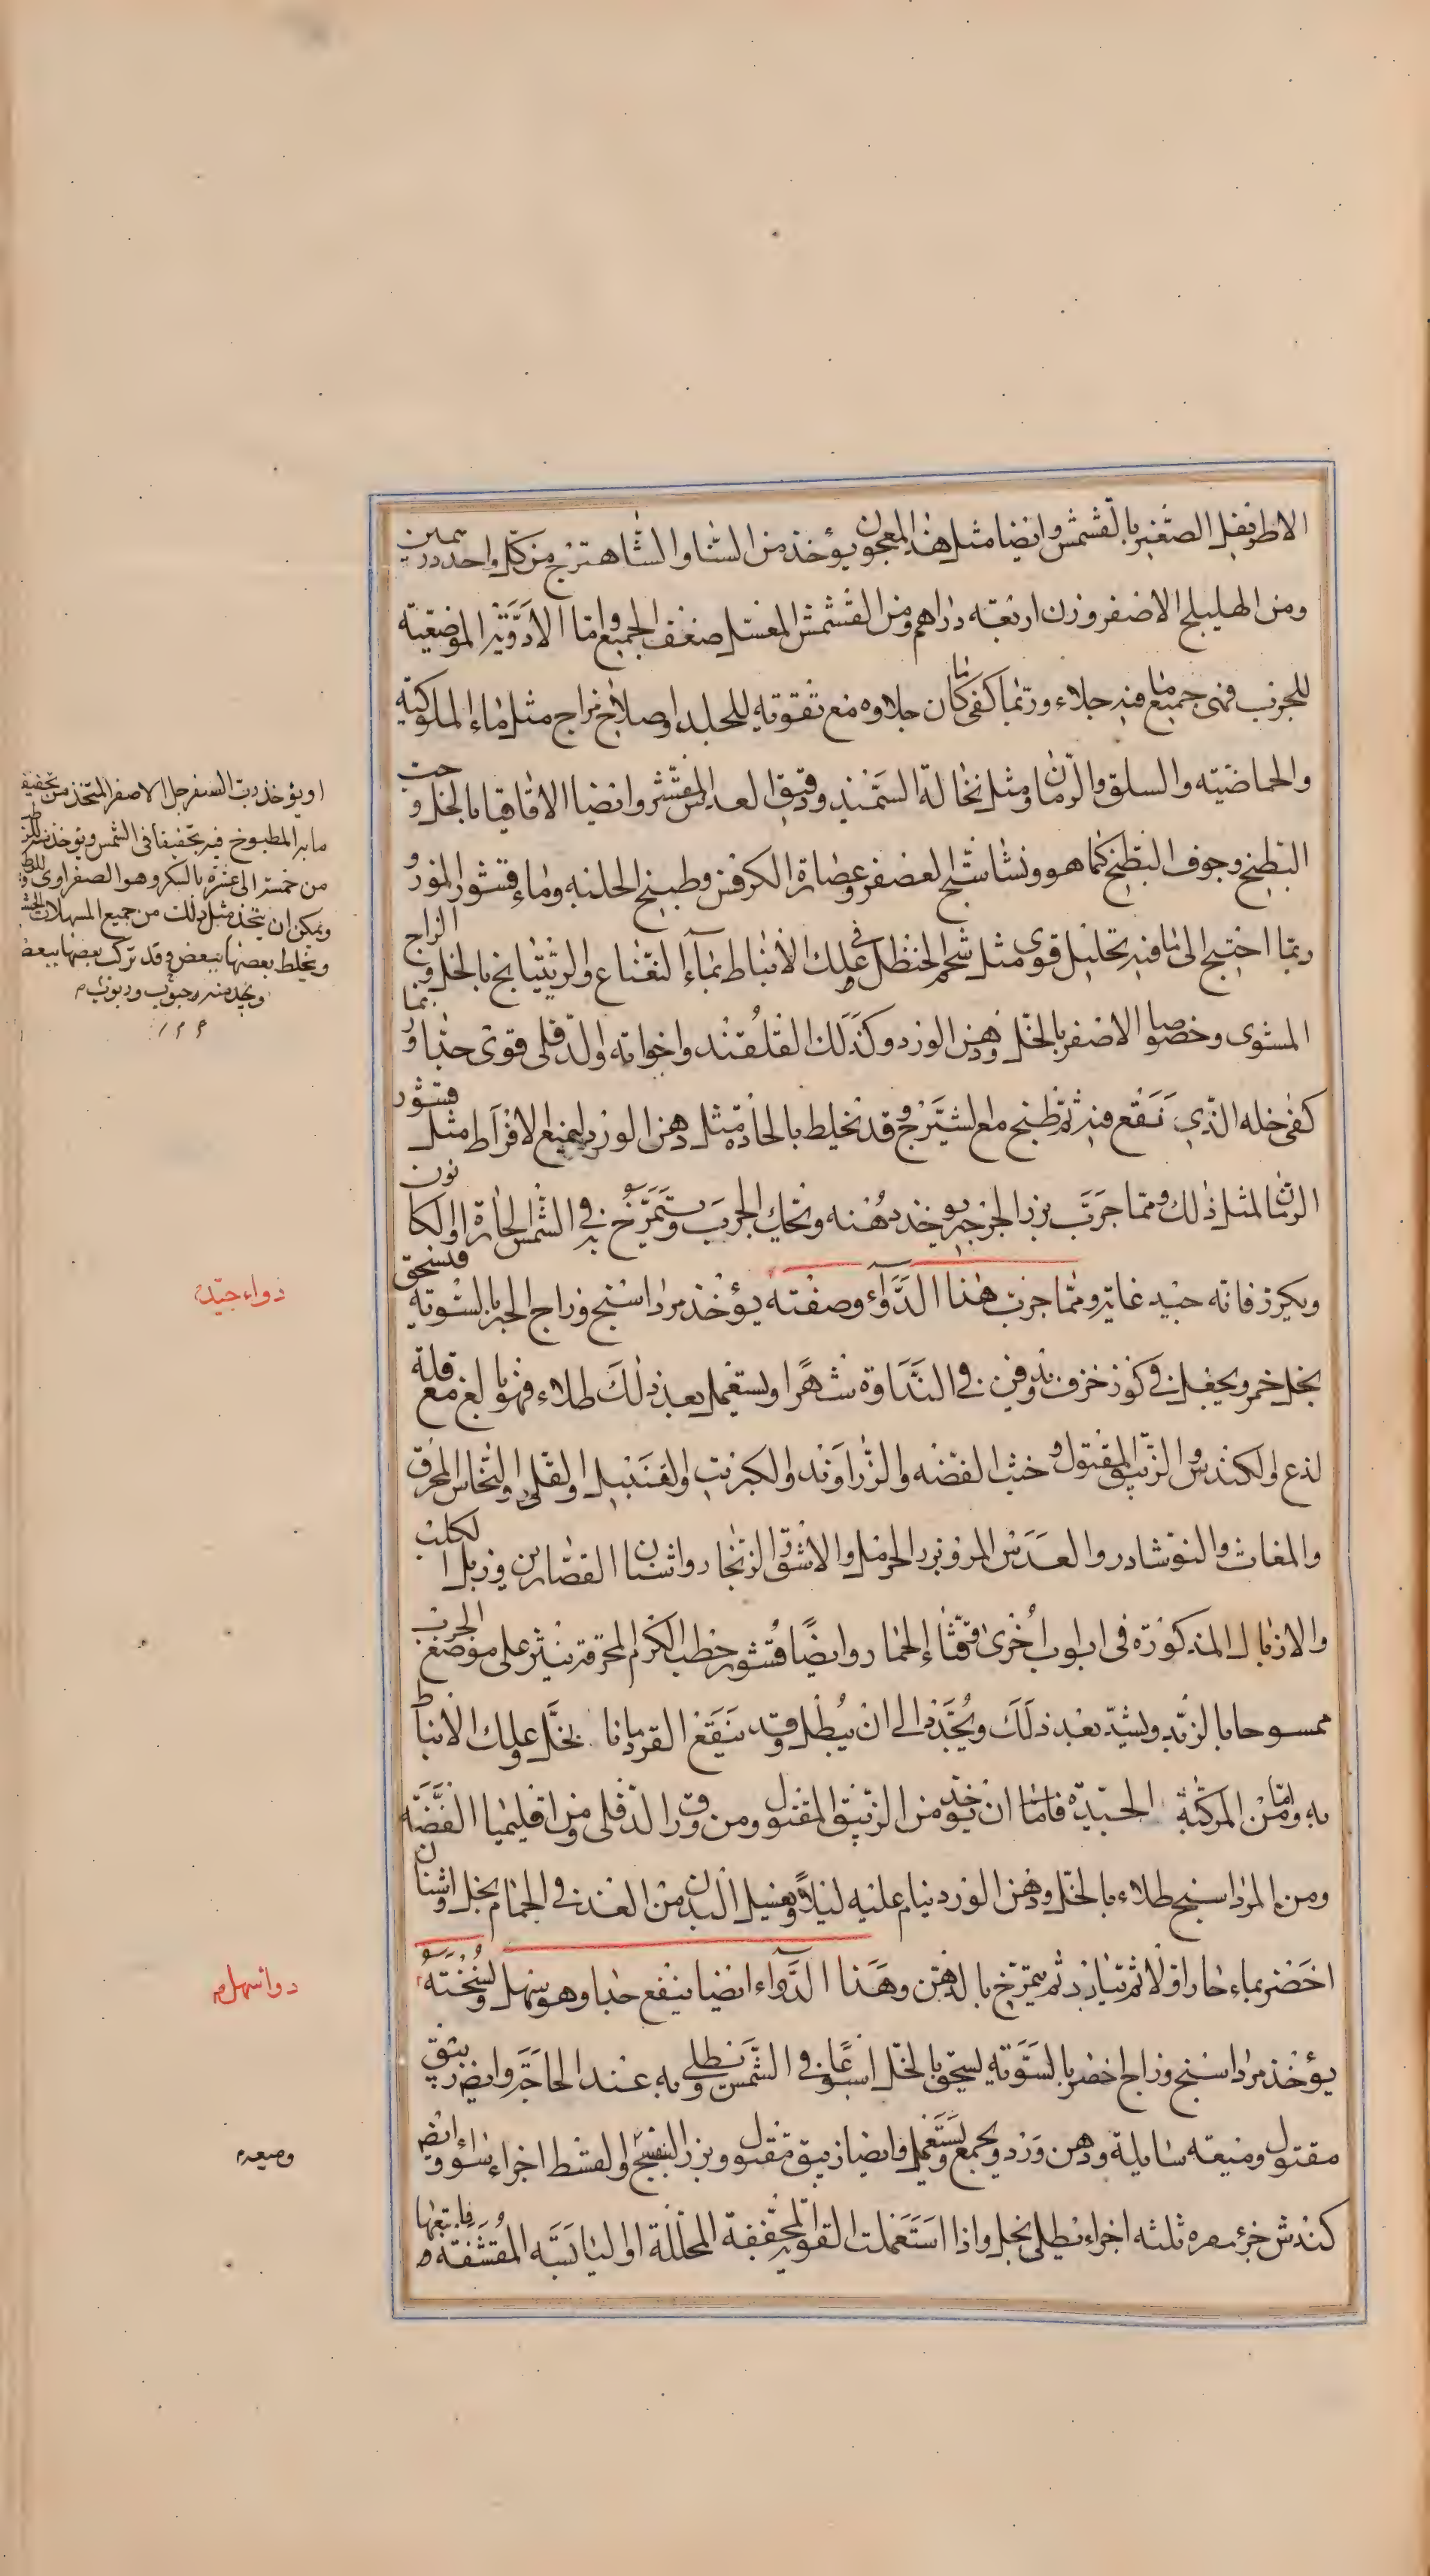 الاطريفل الصغير بالقشمش وايضا مثل هذا المعجون يؤخذ من السنا والشاهترج من كل واحد درهمين
ومن الهليلج الاصفر وزن اربعة دراهم ومن القشمش المغسل ضعف الجميع واما الادوية الموضعية
للجرب فهى جميع ما فيه جلاء وربما كفى ما كان جلاوه مع تقوته للجلد واصلاح مزاج مثل ماء الملوكية
والحماضية والسلق والرمان ومثل نخالة السميد ودقيق العدس المقشر وايضا الاقاقيا بالخل وحب
البطيخ وجوف البطيخ كما هو ونشاشتج العصفر وعصارة الكرفس وطبيخ الحلبه وماء قشور الموز و
ربما احتيج الى ما فيه تحليل قوى مثل شحم الحنظل وفى علك الانباط بماء النعناع والريتيانج بالخل والزاج
المشوى وخصوصا الاصفر بالخل ودهن الورد وكذلك القلقند واخواته والدفلى قوى جدا وربما
كفى خله الذى نقع فيه ثم طبخ مع الشيترج وقد نخلط بالحادة مثل دهن الورد ليمنع الافراط مثل قشور
الرمان المثل ذلك ومما جرب بزر الجرجير يوخذ دهنه ونحك الجرب ويتمرخ به فى الشمس الحارة او الكانون
ويكرر فانه جيد غاية ومما جرب هذا الدواء وصفته يؤخذ مرداسنج وزاج الحبر بالسوية فيسحق
بخل خمر ويجعل فى كوز خزف ندوفن فى النداوة شهرا ويستعمل بعد ذلك طلاء فهو بالغ مع قلة
لذع والكندس والزيبق المقتول وخبث الفضه والزراوند والكبريت والقنبيل والقلى والنحاس المحرق
والمغاث والنوشادر والعدس المر وبزر الحرمل والاشق والزنجار واشنان القصارين وزبل الكلب
والازبال المذكورة فى ابواب اخرى وقثاء الحمار وايضا قشور حطب الكرم المحرقة ينثر على موضع الجرب
ممسوحا بالزيد ويشد بعد ذلك ويجدد الى ان يبطل وقد ينقع القردمانا بخل وعلك الانباط
به واما من المركبة الجيدة فاما ان يؤخذ من الزيبق المقتول ومن ورق الدفلى ومن اقليميا الفضه
ومن المرداسنج طلاء بالخل ودهن الورد ينام عليه ليلا ويغسل البدن من الغد فى الحمام بخل واشنان
اخضر بماء حار اولا ثم ببارد ثم يتمرخ بالدهن وهذا الدواء ايضا ينفع جدا وهو سهل ونسخته
يؤخذ مرداسنج وزاج اخضر بالسوية يسحق بالخل اسبوعا فى الشمس ويطلى به عند الحاجة وايضا زيبق
مقتول وميعه سايلة ودهن ورد ويجمع ويستعمل وايضا زيبق مقتول وبزر البنفسج والقسط اجزاء سواء وايضا
كندش جزء مغره ثلثه اجزاء يطلى بخل واذا استعملت القوية المجففة المحللة او اليابسة المقشفة فاتبعها
او يؤخذ رب السفرجل الاصفر المتخذ من تجفيف
ما به المطبوخ فيه تجفيفا فى الشمس ويؤخذ منه
من خمسة الى عشرة بالسكر وهو الصفراوى
ويمكن ان يتخذ مثل ذلك من جميع المسهلات
ويخلط بعضها ببعض وقد تركب بعضها ببعض
ويتخذ منه حبوب وربوب
دواء جيد
دوا سهل
وميعه